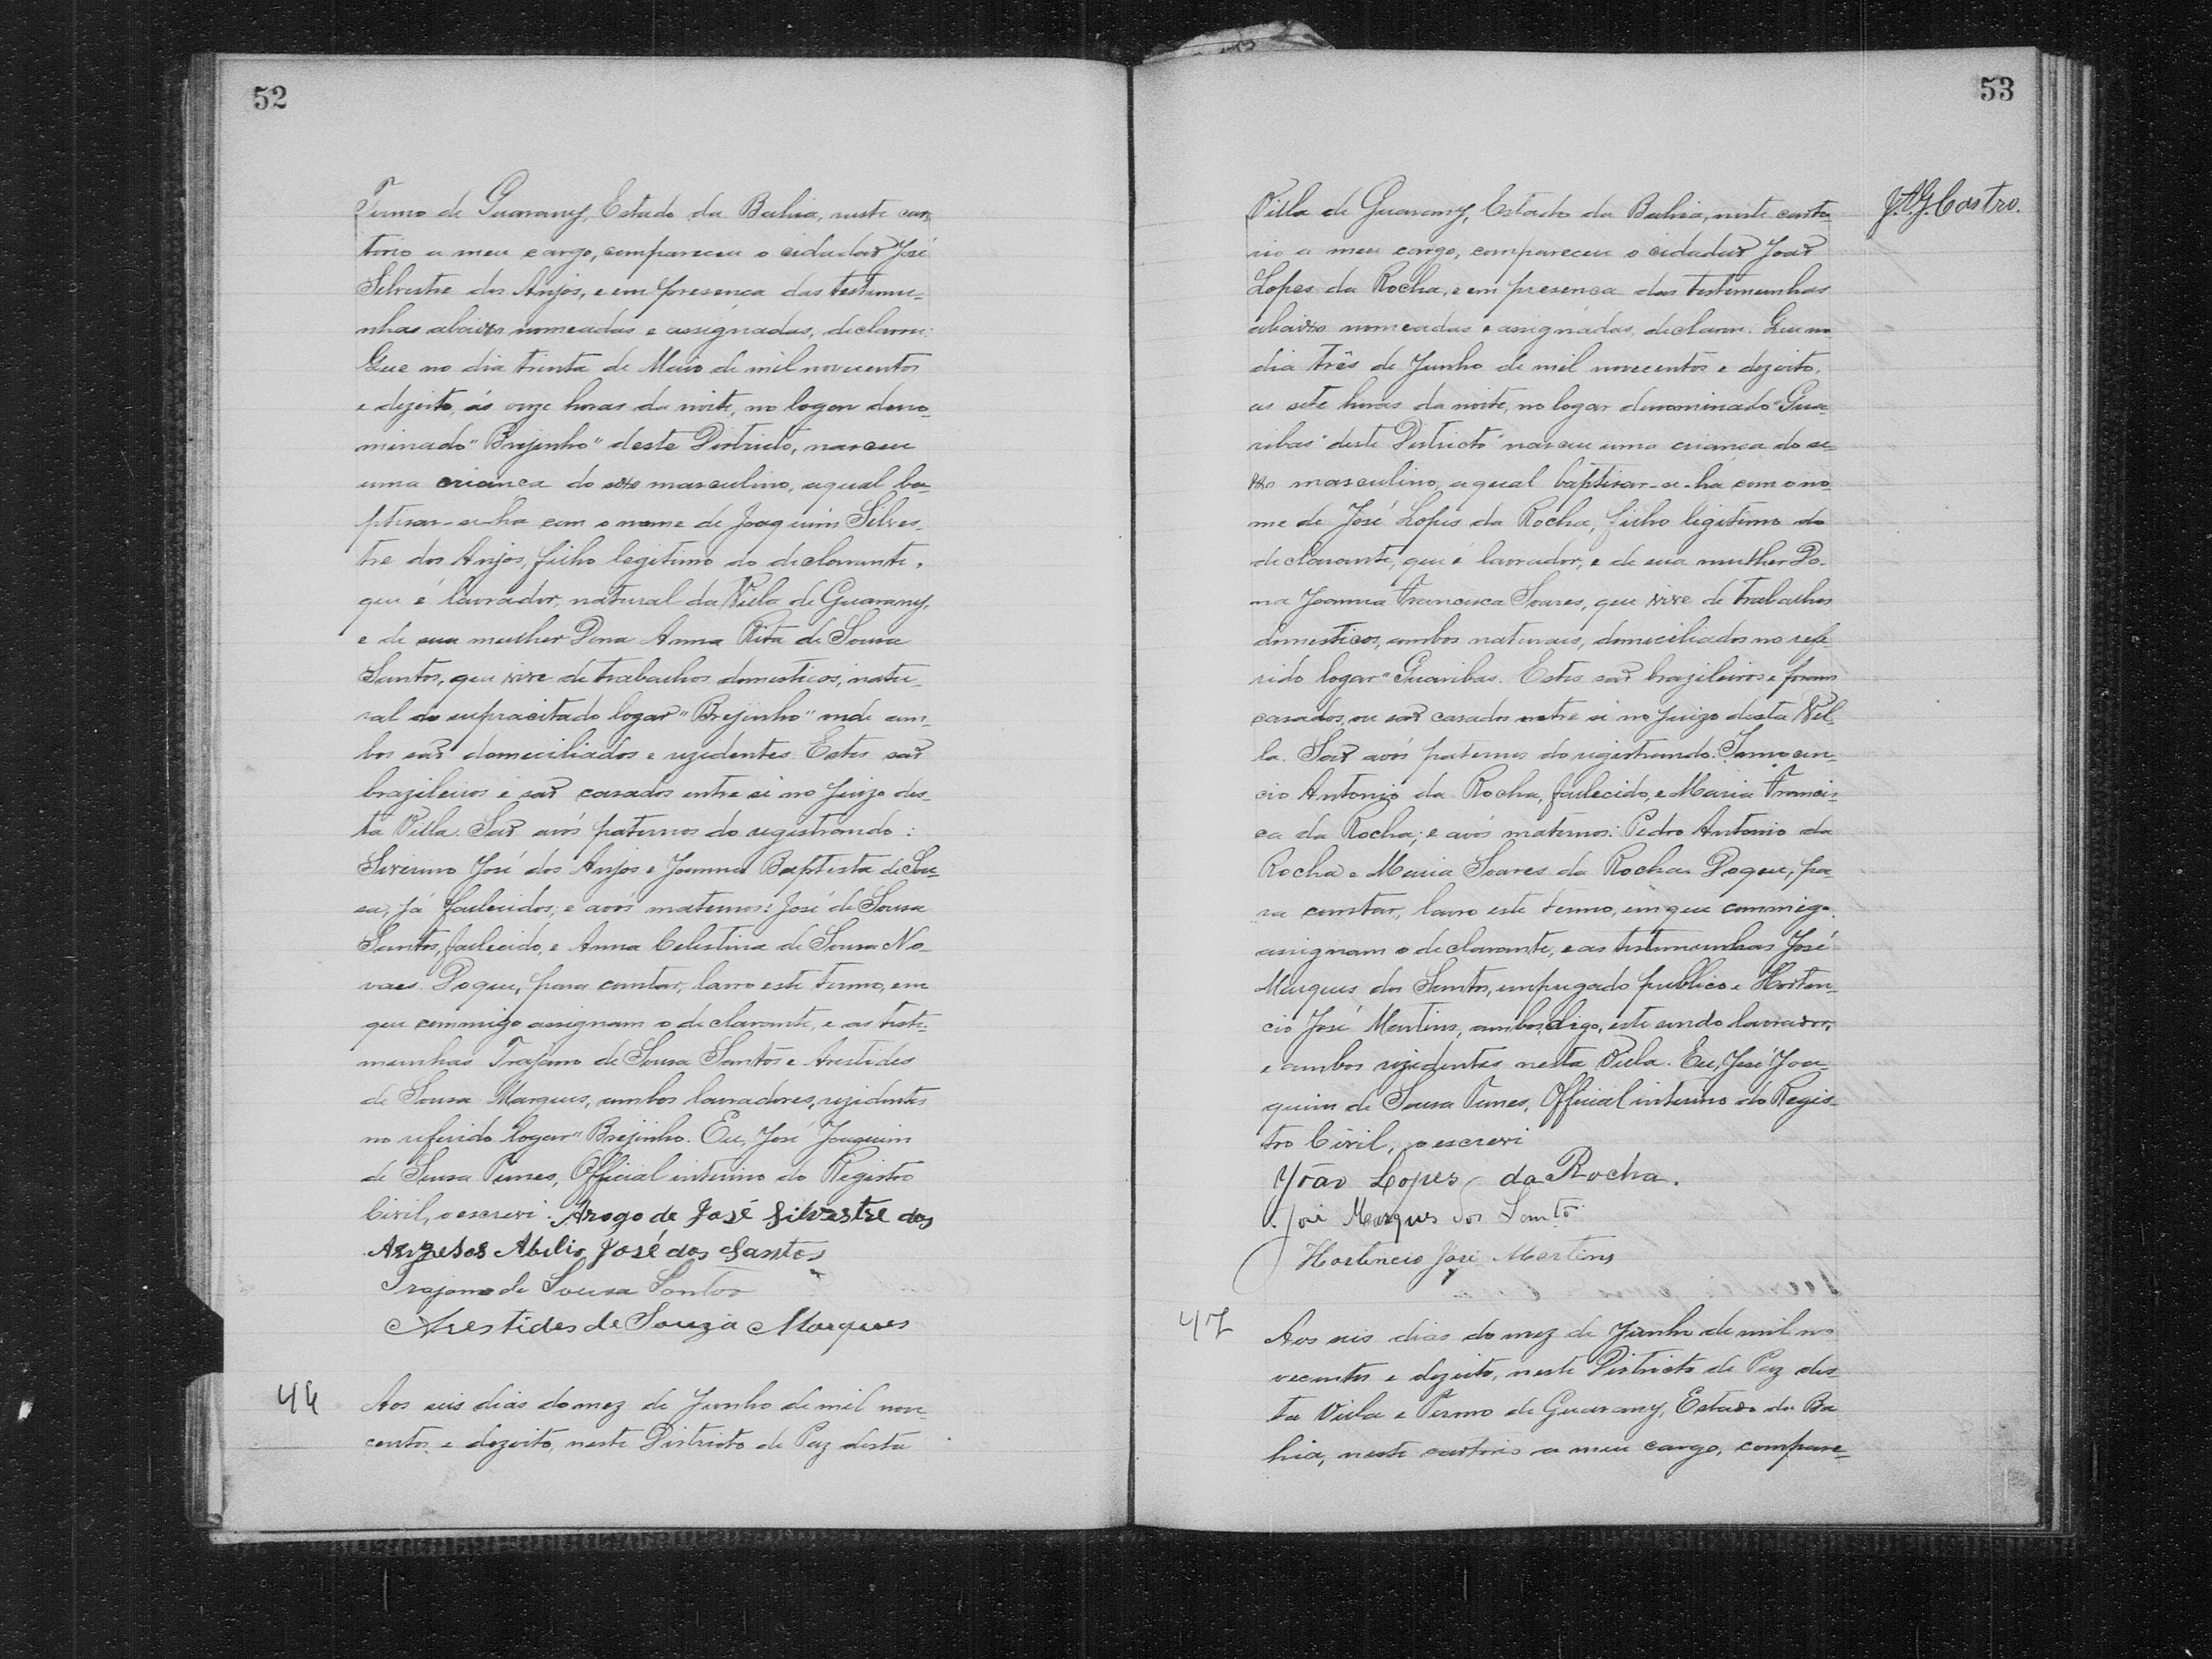 52
Termo de Guarany, Estado da Bahia, neste car-
torio a meu cargo, compareceu o cidadaõ José
Silvestre dos Anjos, e em presença das testimu-
nhas abaixo nomeadas e assignadas, declarou:
Que no dia trinta de Maio de mil novecentos
e dezoito, ás onze horas da noite, no logar deno-
minado "Brejinho" deste Districto, nasceu
uma criança do sexo masculino, aqual ba-
ptisar-se-ha com o nome de Joaquim Silves-
tre dos Anjos, filho legitimo do declarante,
que é lavrador, natural da Villa de Guarany,
e de sua mulher Dona Anna Rita de Sousa
Santos, que vive de trabalhos domesticos, natu-
ral do supracitado logar "Brejinho" onde am-
bos saõ domiciliados e rezidentes. Estes saõ
brazileiros e saõ casados entre si no Juizo des-
ta Villa. Saõ avós paternos do registrando:
Severino José dos Anjos e Joanna Baptista de Sou-
sa, já falecidos; e avós maternos: José de Sousa
Santos, falecido, e Anna Celestina de Sousa No-
vaes. Do que, para constar, lavro este termo, em
que commigo assignam o declarante, e as teste-
munhas Trajano de Sousa Santos e Arestides
de Sousa Marques, ambos lavradores, rezidentes
no referido logar "Brejinho. Eu, José Joaquim
de Sousa Tunes, Official interino do Registro
Civil, o escrevi. Arogo de José Silvestre dos
Abilio José dos Santos
Trajano de Sousa Santos
Arestides de Souza Marques
46 Aos seis dias do mez de Junho de mil nove-
centos e dezoito, neste Districto de Paz desta
53
J.A.G. Castro.
Villa de Guarany, Estado da Bahia, neste carto-
rio a meu cargo, compareceu o cidadaõ Joaõ
Lopes da Rocha, e em presença das testemunhas
abaixo nomeadas e assignadas, declarou: Que no
dia três de Junho de mil novecentos e dezoito,
as sete horas da noite, no logar denominado "Gua-
ribas" deste Districto" nasceu uma criança do se-
xo masculino, aqual baptisar-se-ha com o no-
me de José Lopes da Rocha, filho legitimo do
declarante, que é lavrador, e de sua mulher Do-
na Joanna Francisca Soares, que vive de trabalhos
domesticos, ambos naturaes, domiciliados no refe-
rido logar "Guaribas. Estes saõ brazileiros e foram
casados, ou saõ casados entre si no Juizo desta Vil-
la. Saõ avós paternos do registrando: Innocen-
cio Antonio da Rocha, falecido, e Maria Francis-
ca da Rocha; e avós maternos: Pedro Antonio da
Rocha e Maria Soares da Rocha. Do que, pa-
ra constar, lavro este termo, em que commigo
assignam o declarante, e as testemunhas José
Marques dos Santos, empregado publico e Horten-
cio José Martins, ambos, digo, este sendo lavrador,
e ambos rezidentes nesta Villa. Eu, José Joa-
quim de Sousa Tunes, Official interino do Regis-
tro Civil, o escrevi
João Lopes da Rocha.
José Marques dos Santos
Hortencio José Martins
47 Aos seis dias do mez de Junho de mil no-
vecentos e dezoito, neste Districto de Paz des-
ta Villa e Termo de Guarany, Estado da Ba-
hia, neste cartorio a meu cargo, compare-